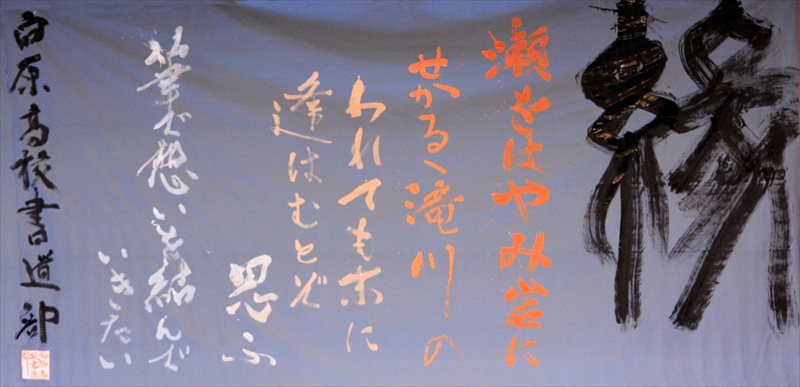 瀬をはやみ岩に
せかるゝ滝川の
われても末に
逢はむとぞ
思ふ
筆で想いを結んで
いきたい
向原高校書道部